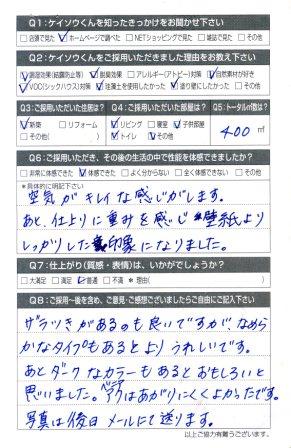 Q1：ケイソウくんを知ったきっかけをお聞かせ下さい
□店頭で見た ☑ホームページで調べた □NETショッピングで見た □雑誌で見た □その他
Q2：ケイソウくんをご採用いただきました理由をお教え下さい
☑調湿効果(結露防止等) ☑脱臭効果 □アレルギー(アトピー)対策 ☑自然素材が好き
☑VOC(シックハウス)対策 □珪藻土を使用したかった ☑塗り壁にしたかった □その他
Q3：ご採用いただいた住居は?
☑新築 □リフォーム
□その他( )
Q4：ご採用いただいた部屋は?
☑リビング □寝室 ☑子供部屋
☑トイレ ☑その他
Q5：トータル㎡数は?
400 ㎡
Q6：ご採用いただき、その後の生活の中で性能を体感できましたか?
□非常に体感できた ☑体感できた □よく分からない □全く体感できない □その他
*具体的に明記下さい
空気がキレイな感じがします。
あと、仕上りに重みを感じ壁紙より
しっかりした印象になりました。
Q7：仕上がり(質感・表情)は、いかがでしょうか?
□大満足 □満足 ☑普通 □不満 * 理由( )
Q8：ご採用〜後を含め、ご意見・ご感想ございましたらご自由にご記入下さい
ザラツキがあるのも良いですが、なめら
かなタイプもあるとよりうれしいです。
あとダークなカラーもあるとおもしろいと
思いました。ベニヤアクはあがりにくくよかったです。
写真は後日メールにて送ります。
以上ご協力有難うございます。